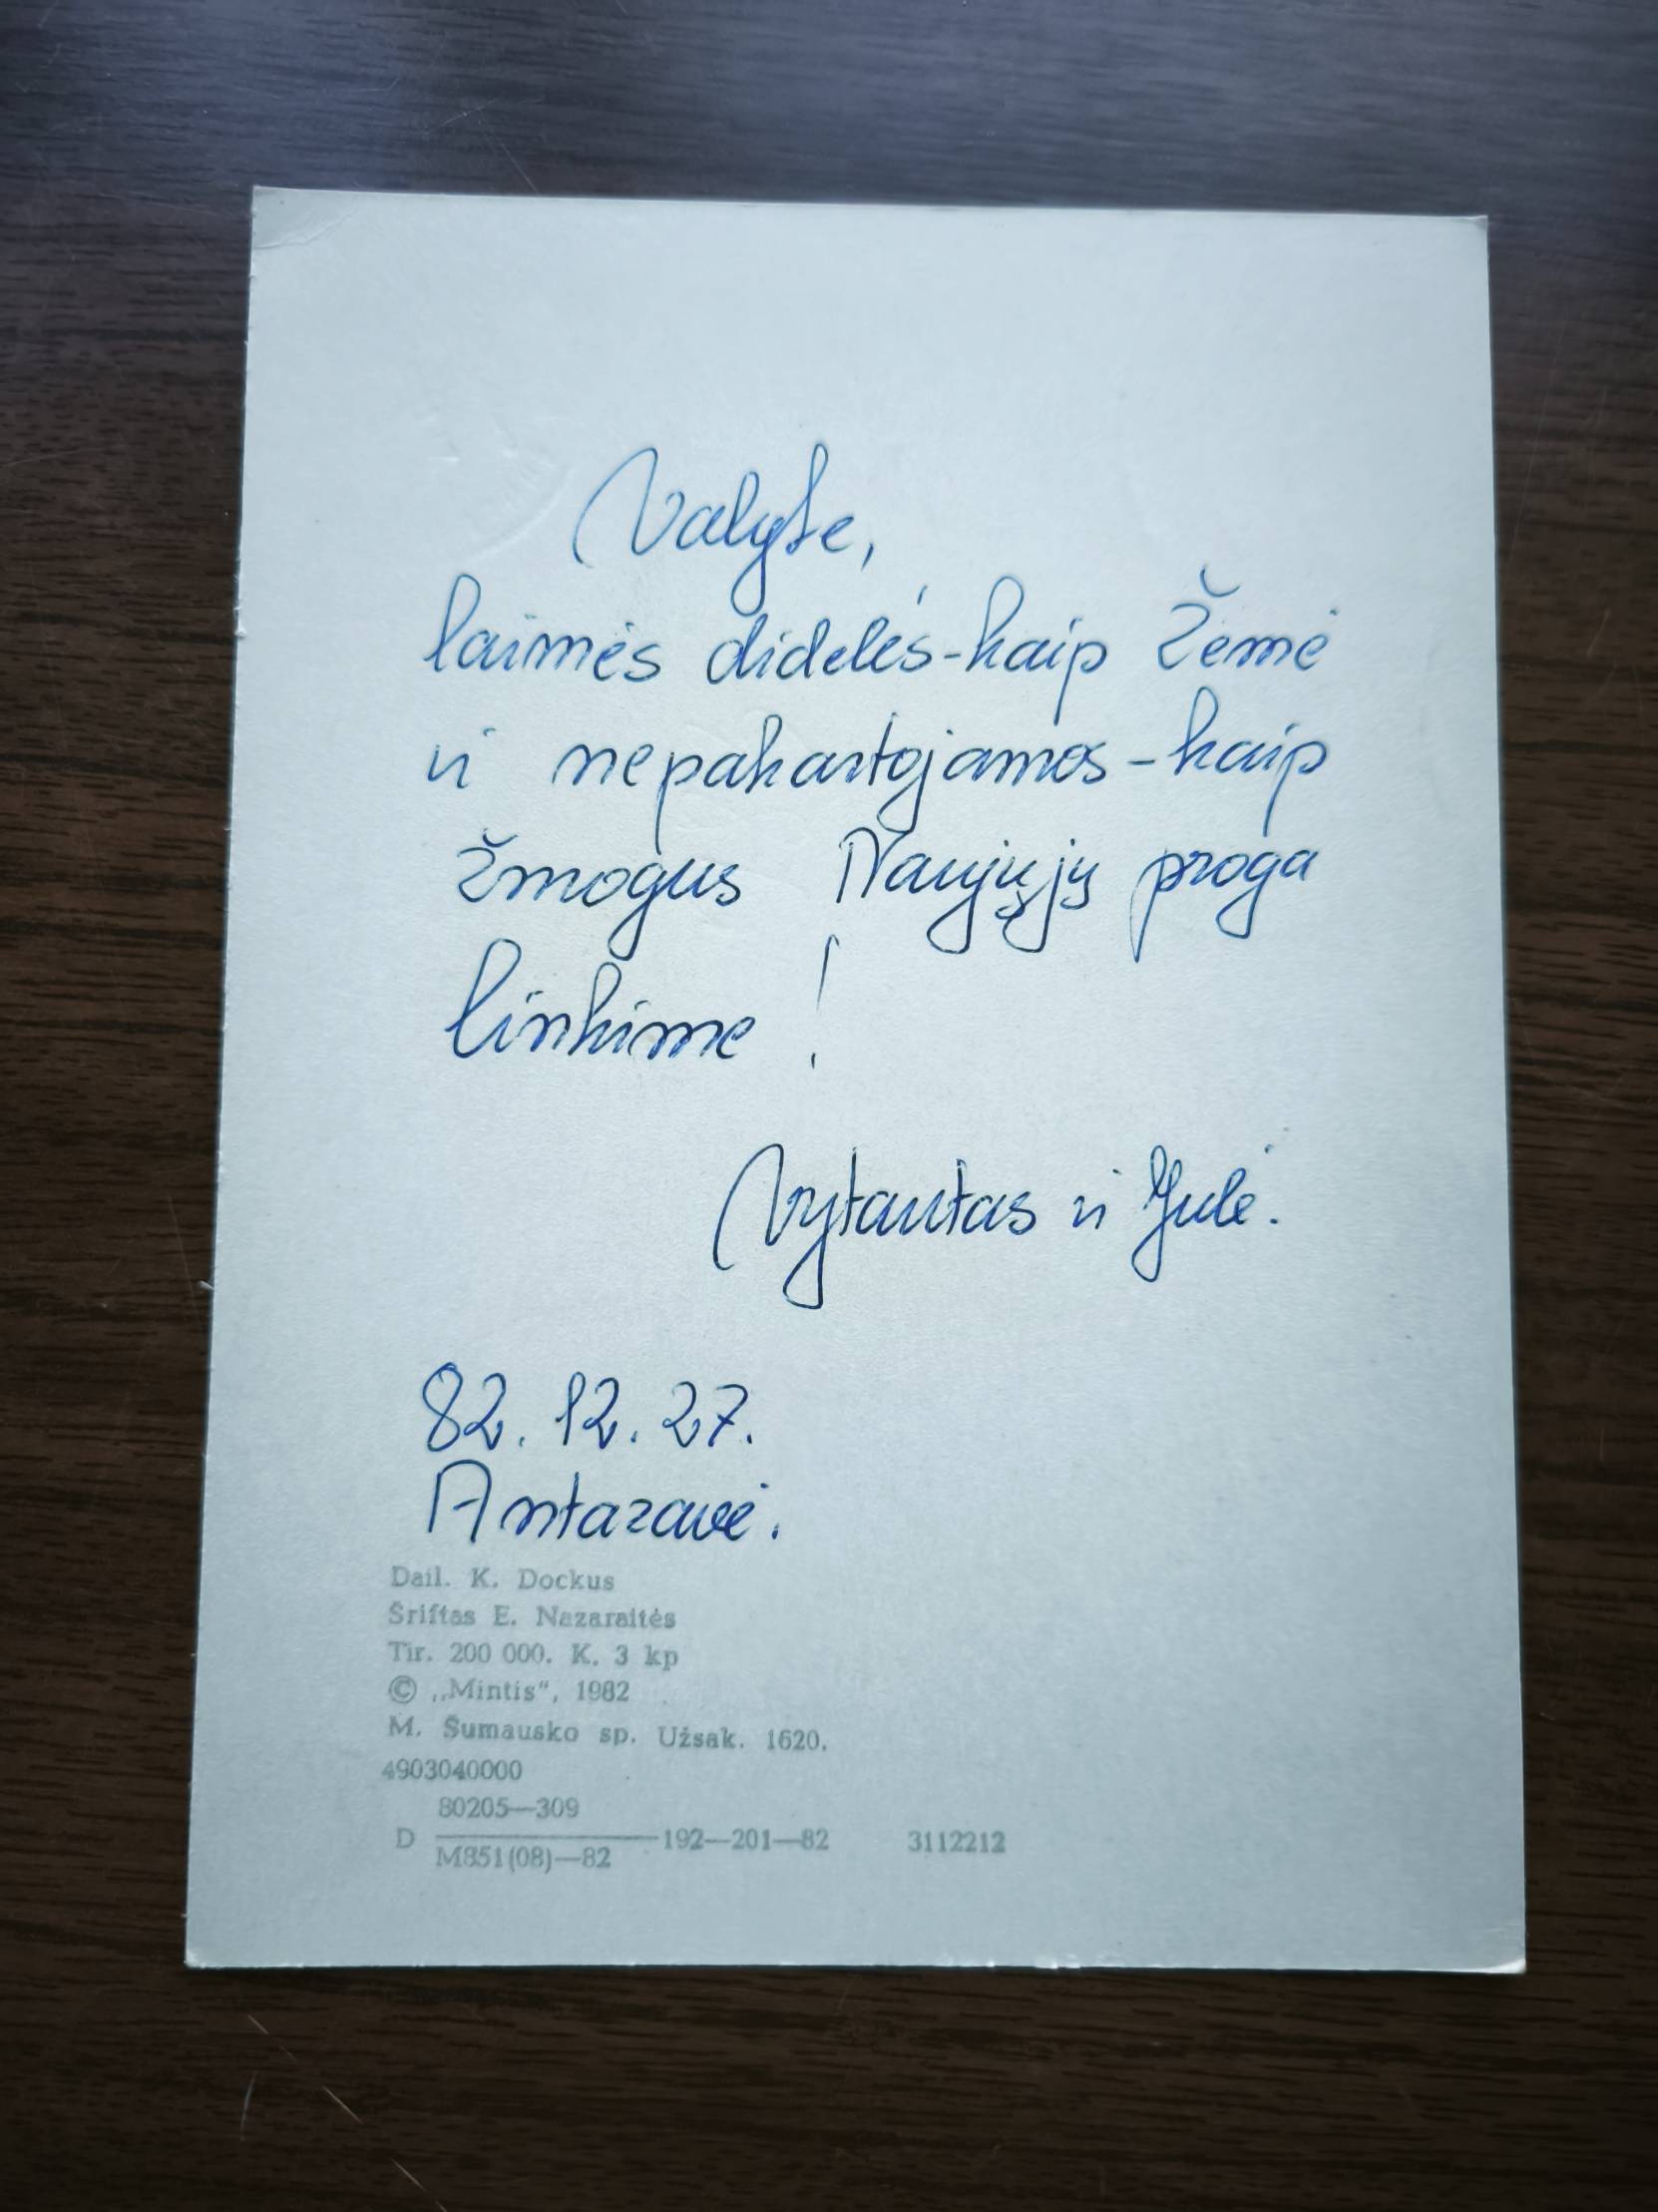 Valyte,
laimės didelės-kaip Žemė
ir nepakartojamos-kaip
žmogus Naujųjų proga
linkime!
Vytautas ir Julė.
82. 12. 27.
Antazavė.
Dail. K. Dockus
Šriftas E. Nazaraitės
Tir. 200 000. K. 3 kp
© „Mintis“, 1982
M. Šumausko sp. Užsak. 1620.
4903040000
80205—309
D 192—201—82 3112212
M851(08)—82